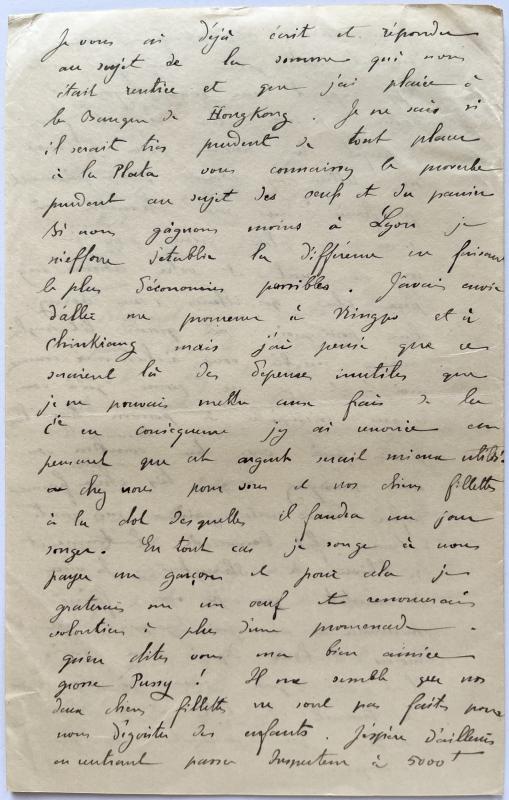 Je vous ai déjà écrit et répondu
au sujet de la somme qui nous
était rentrée et que j'ai placée à
la Banque de HongKong. Je ne sais si
il serait très prudent de tout placer
à la Plata vous connaissez le proverbe
prudent au sujet des oeufs et du panier
Si nous gagnons moins à Lyon je
m'efforce d'établir la différence en faisant
le plus d'économies possibles. J'avais envie
d'aller me promener à Ningpo et à
Chinkiang mais j'ai pensé que ce
seraient là des dépenses inutiles que
je ne pouvais mettre aux frais de la
Cie en conséquence j'y ai renoncé en
pensant que cet argent serait mieux utilisé
chez nous pour vous et nos chères fillettes
à la dot desquelles il faudra un jour
songer. En tout cas je songe à nous
payer un garçon et pour cela je
gratterais sur un oeuf et renoncerais
volontiers à plus d'une promenade.
qu'en dites vous ma bien aimée
grosse Pussy! Il me semble que nos
deux chères fillettes ne sont pas faites pour
nous dégoûter des enfants. J'espère d'ailleurs
en rentrant passer Inspecteur à 5000f